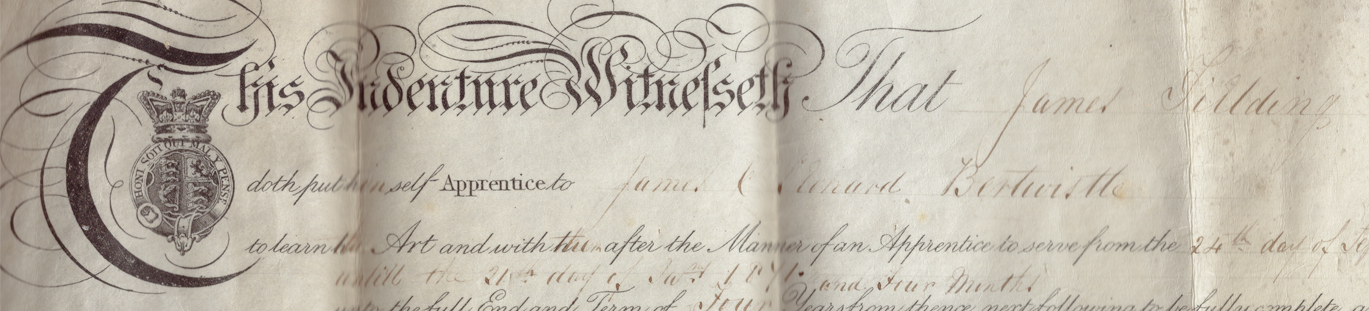 This Indenture Witnesseth That James Fielding
HONI SOIT QUI MAL Y PENSE
doth put himself Apprentice to James & Richard Bertwistle
to learn their Art and with them after the Manner of an Apprentice to serve from the 24th day of
untill the 21st day of 187 and Four Months
unto the full End and Term of Four Years from thence next following to be fully complete